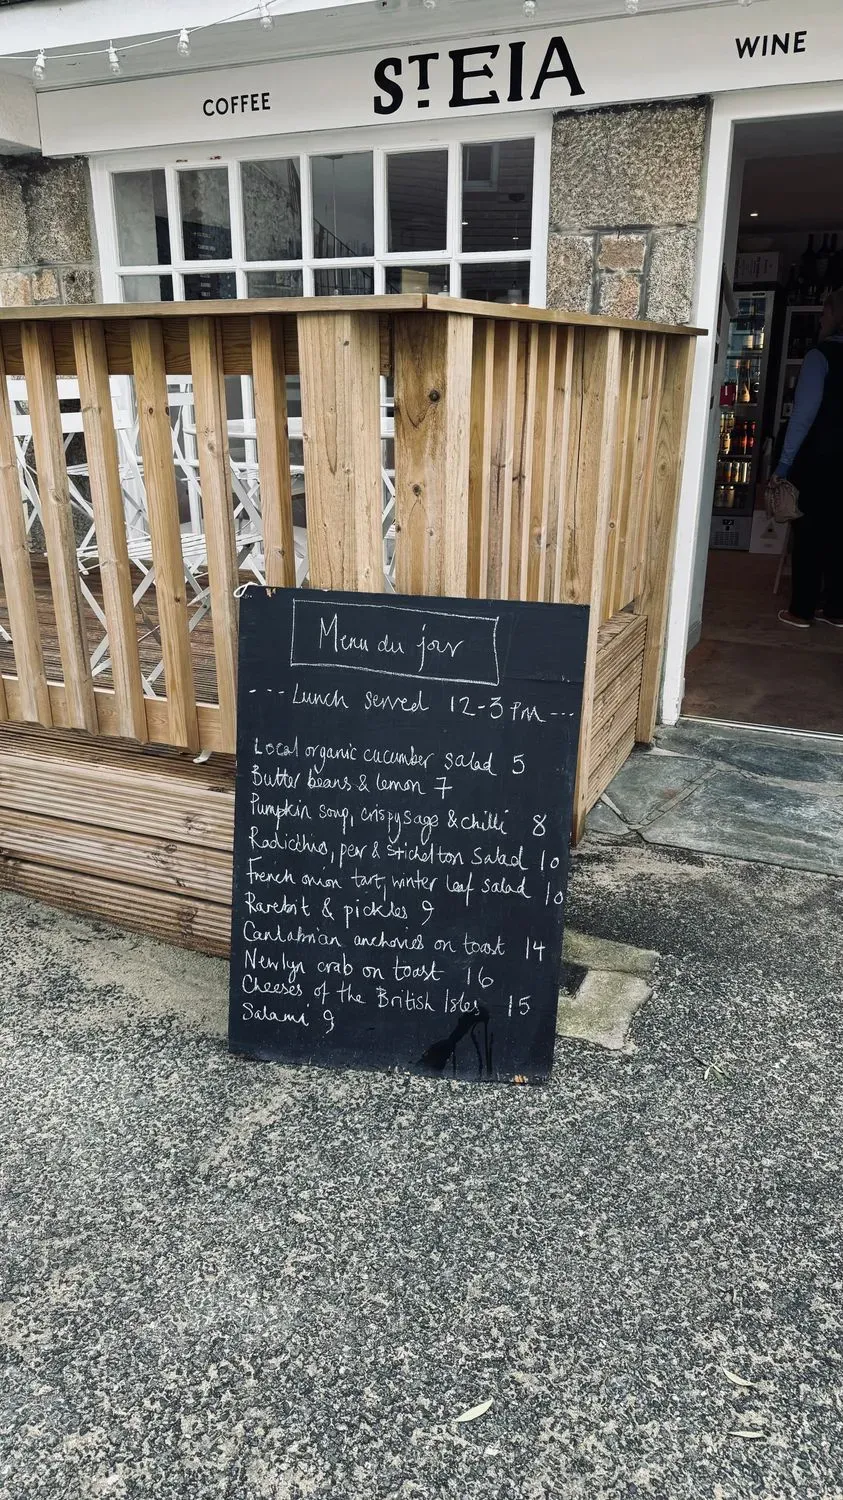 COFFEE
ST EIA
WINE
Menu du jour
--- Lunch served 12-3 PM ---
Local organic cucumber salad 5
Butter beans & lemon 7
Pumpkin soup, crispy sage & chilli 8
Radicchio, pear & Stichelton Salad 10
French onion tart, winter leaf salad 10
Rarebit & pickles 9
Cantabrian anchovies on toast 14
Newlyn crab on toast 16
Cheeses of the British Isles 15
Salami 9